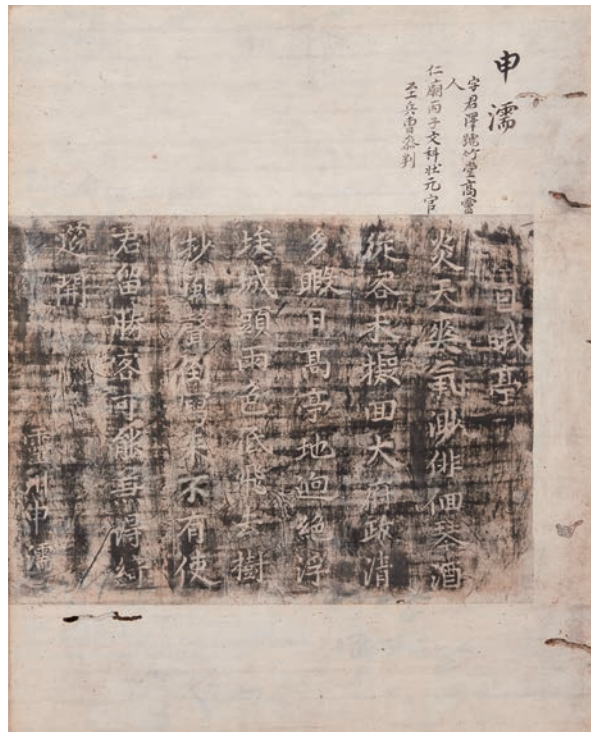 申濡
字君澤號竹堂高靈
人
仁廟丙子文科壯元官
至兵曹參判
日哦亭
炎天爽氣渺徘佪琴酒
從容未擬回大府政清
多暇日高亭地逈絶浮
埃城頭雨色低飛去樹
抄風聲倒來不有使
君留勝客可能無得綺
筵開
靈川申濡